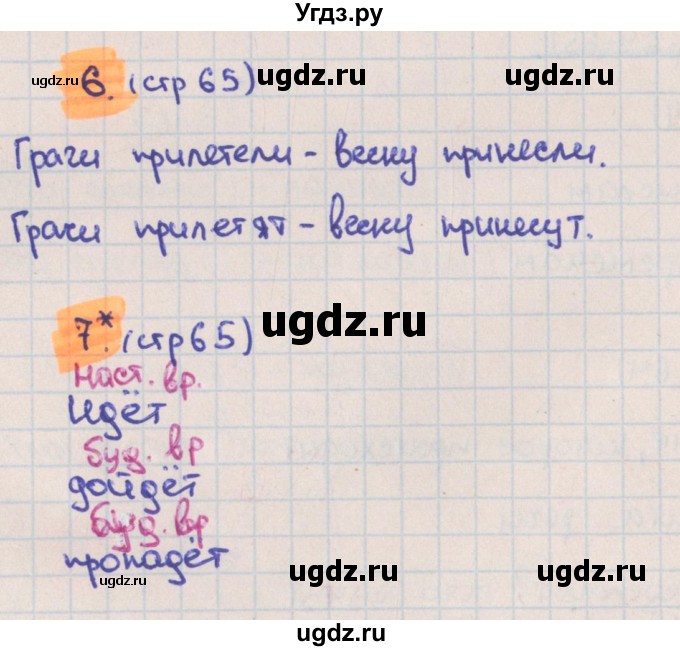 Угдз.ру
ugdz.ru 6. (стр 65) ugdz.ru ugdz.ru
Грачи прилетели - весну принесли.
Грачи прилетят - весну принесут.
7*. (стр 65) ugdz.ru
Наст. вр.
Идёт
Буд. вр
дойдёт
Буд. вр
пропадёт
ugdz.ru ugdz.ru ugdz.ru
ugdz.ru